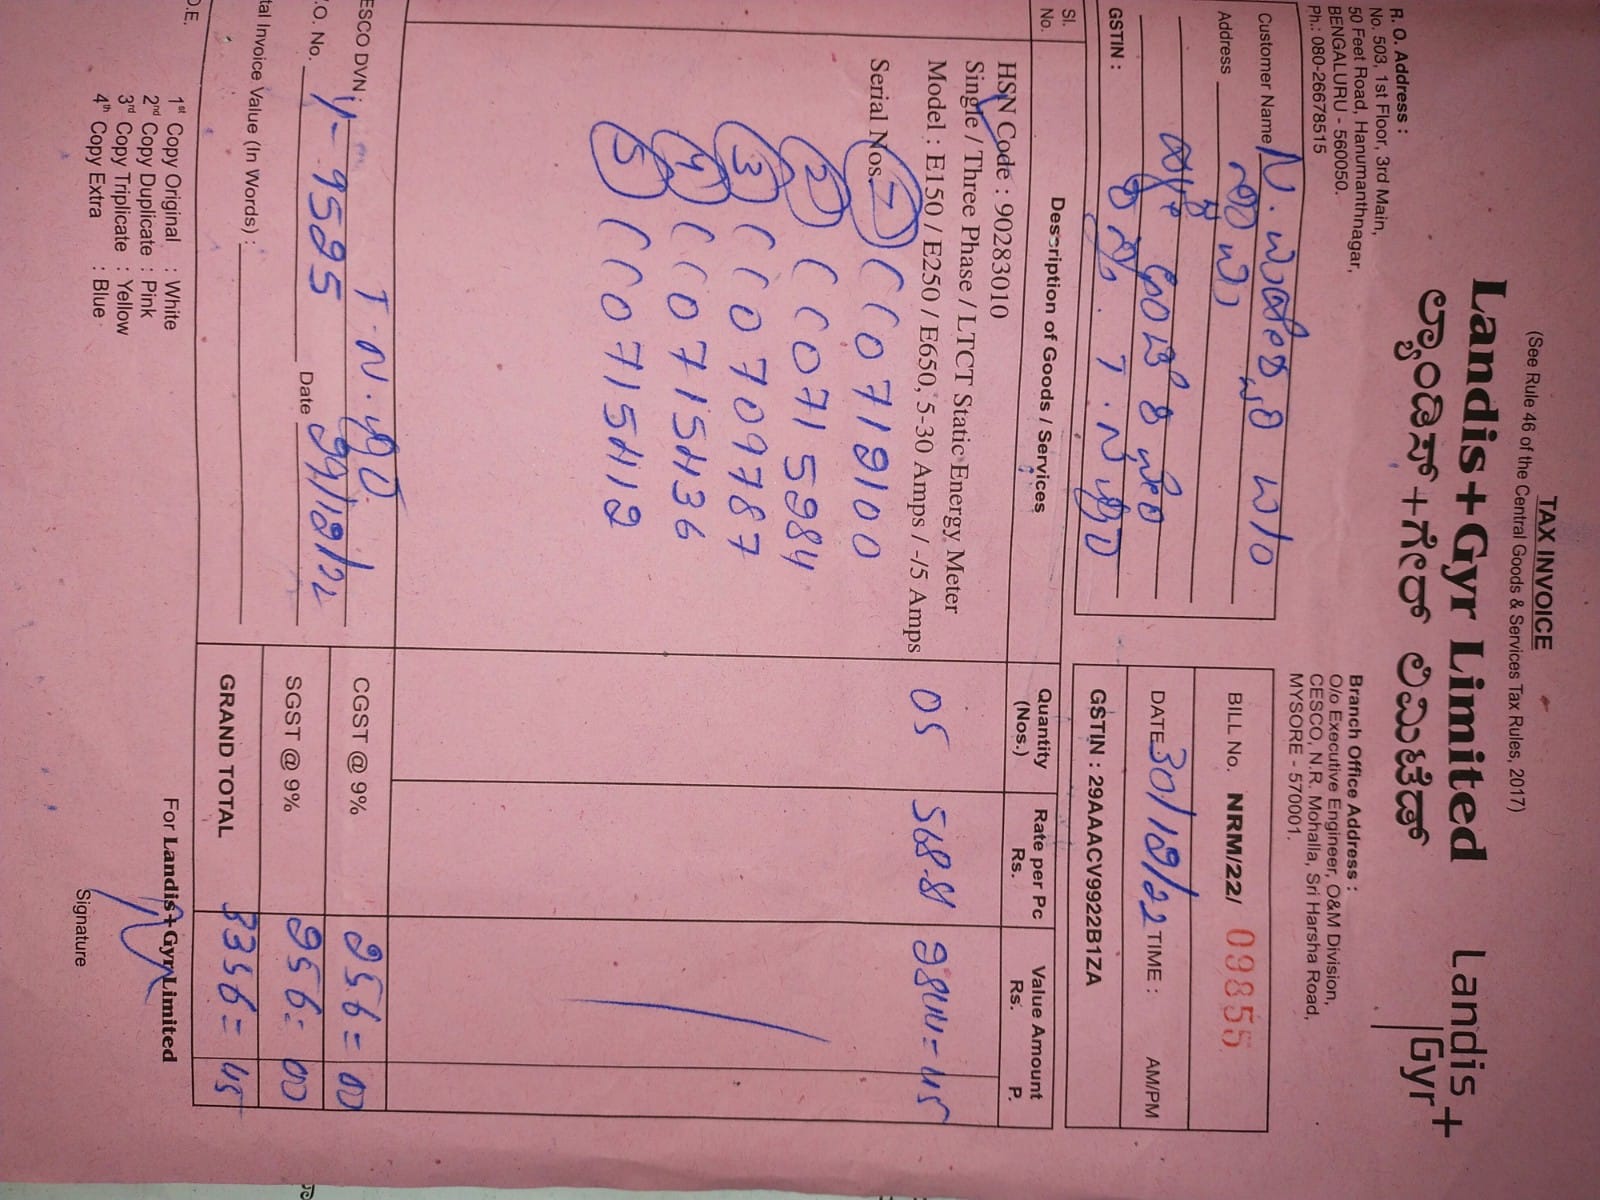 TAX INVOICE
(See Rule 46 of the Central Goods & Services Tax Rules, 2017)
Landis+Gyr Limited
ಲ್ಯಾಂಡಿಸ್+ಗೇರ್ ಲಿಮಿಟೆಡ್
Landis+
Gyr
R. O. Address :
No. 503, 1st Floor, 3rd Main,
50 Feet Road, Hanumanthnagar,
BENGALURU - 560050.
Ph.: 080-26678515
Branch Office Address :
O/o Executive Engineer, O&M Division,
CESCO, N.R. Mohalla, Sri Harsha Road,
MYSORE - 570001.
Customer Name
Address
GSTIN :
BILL No. NRM/22/ 09855
DATE 30/12/22 TIME : AM/PM
GSTIN : 29AAACV9922B1ZA
Sl. No. Description of Goods / Services Quantity (Nos.) Rate per Pc Rs. Value Amount Rs. P.
HSN Code : 90283010
Single / Three Phase / LTCT Static Energy Meter
Model : E150 / E250 / E650, 5-30 Amps / -/5 Amps 05 568.8
Serial Nos.
1 CC0719100
2 CC0715984
3 CC0709787
4 CC0715436
5 CC0715412
ESCO DVN :
.O. No. 9595 Date
tal Invoice Value (In Words) :
CGST @ 9% 256=00
SGST @ 9% 256=00
GRAND TOTAL 3356=45
D.E.
1st Copy Original : White
2nd Copy Duplicate : Pink
3rd Copy Triplicate : Yellow
4th Copy Extra : Blue
For Landis+Gyr Limited
Signature